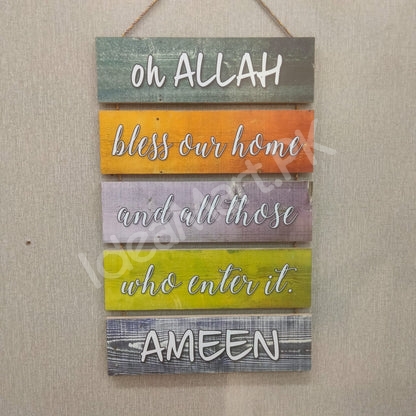 oh ALLAH
bless our home
and all those
who enter it.
AMEEN
IdeaMart.PK